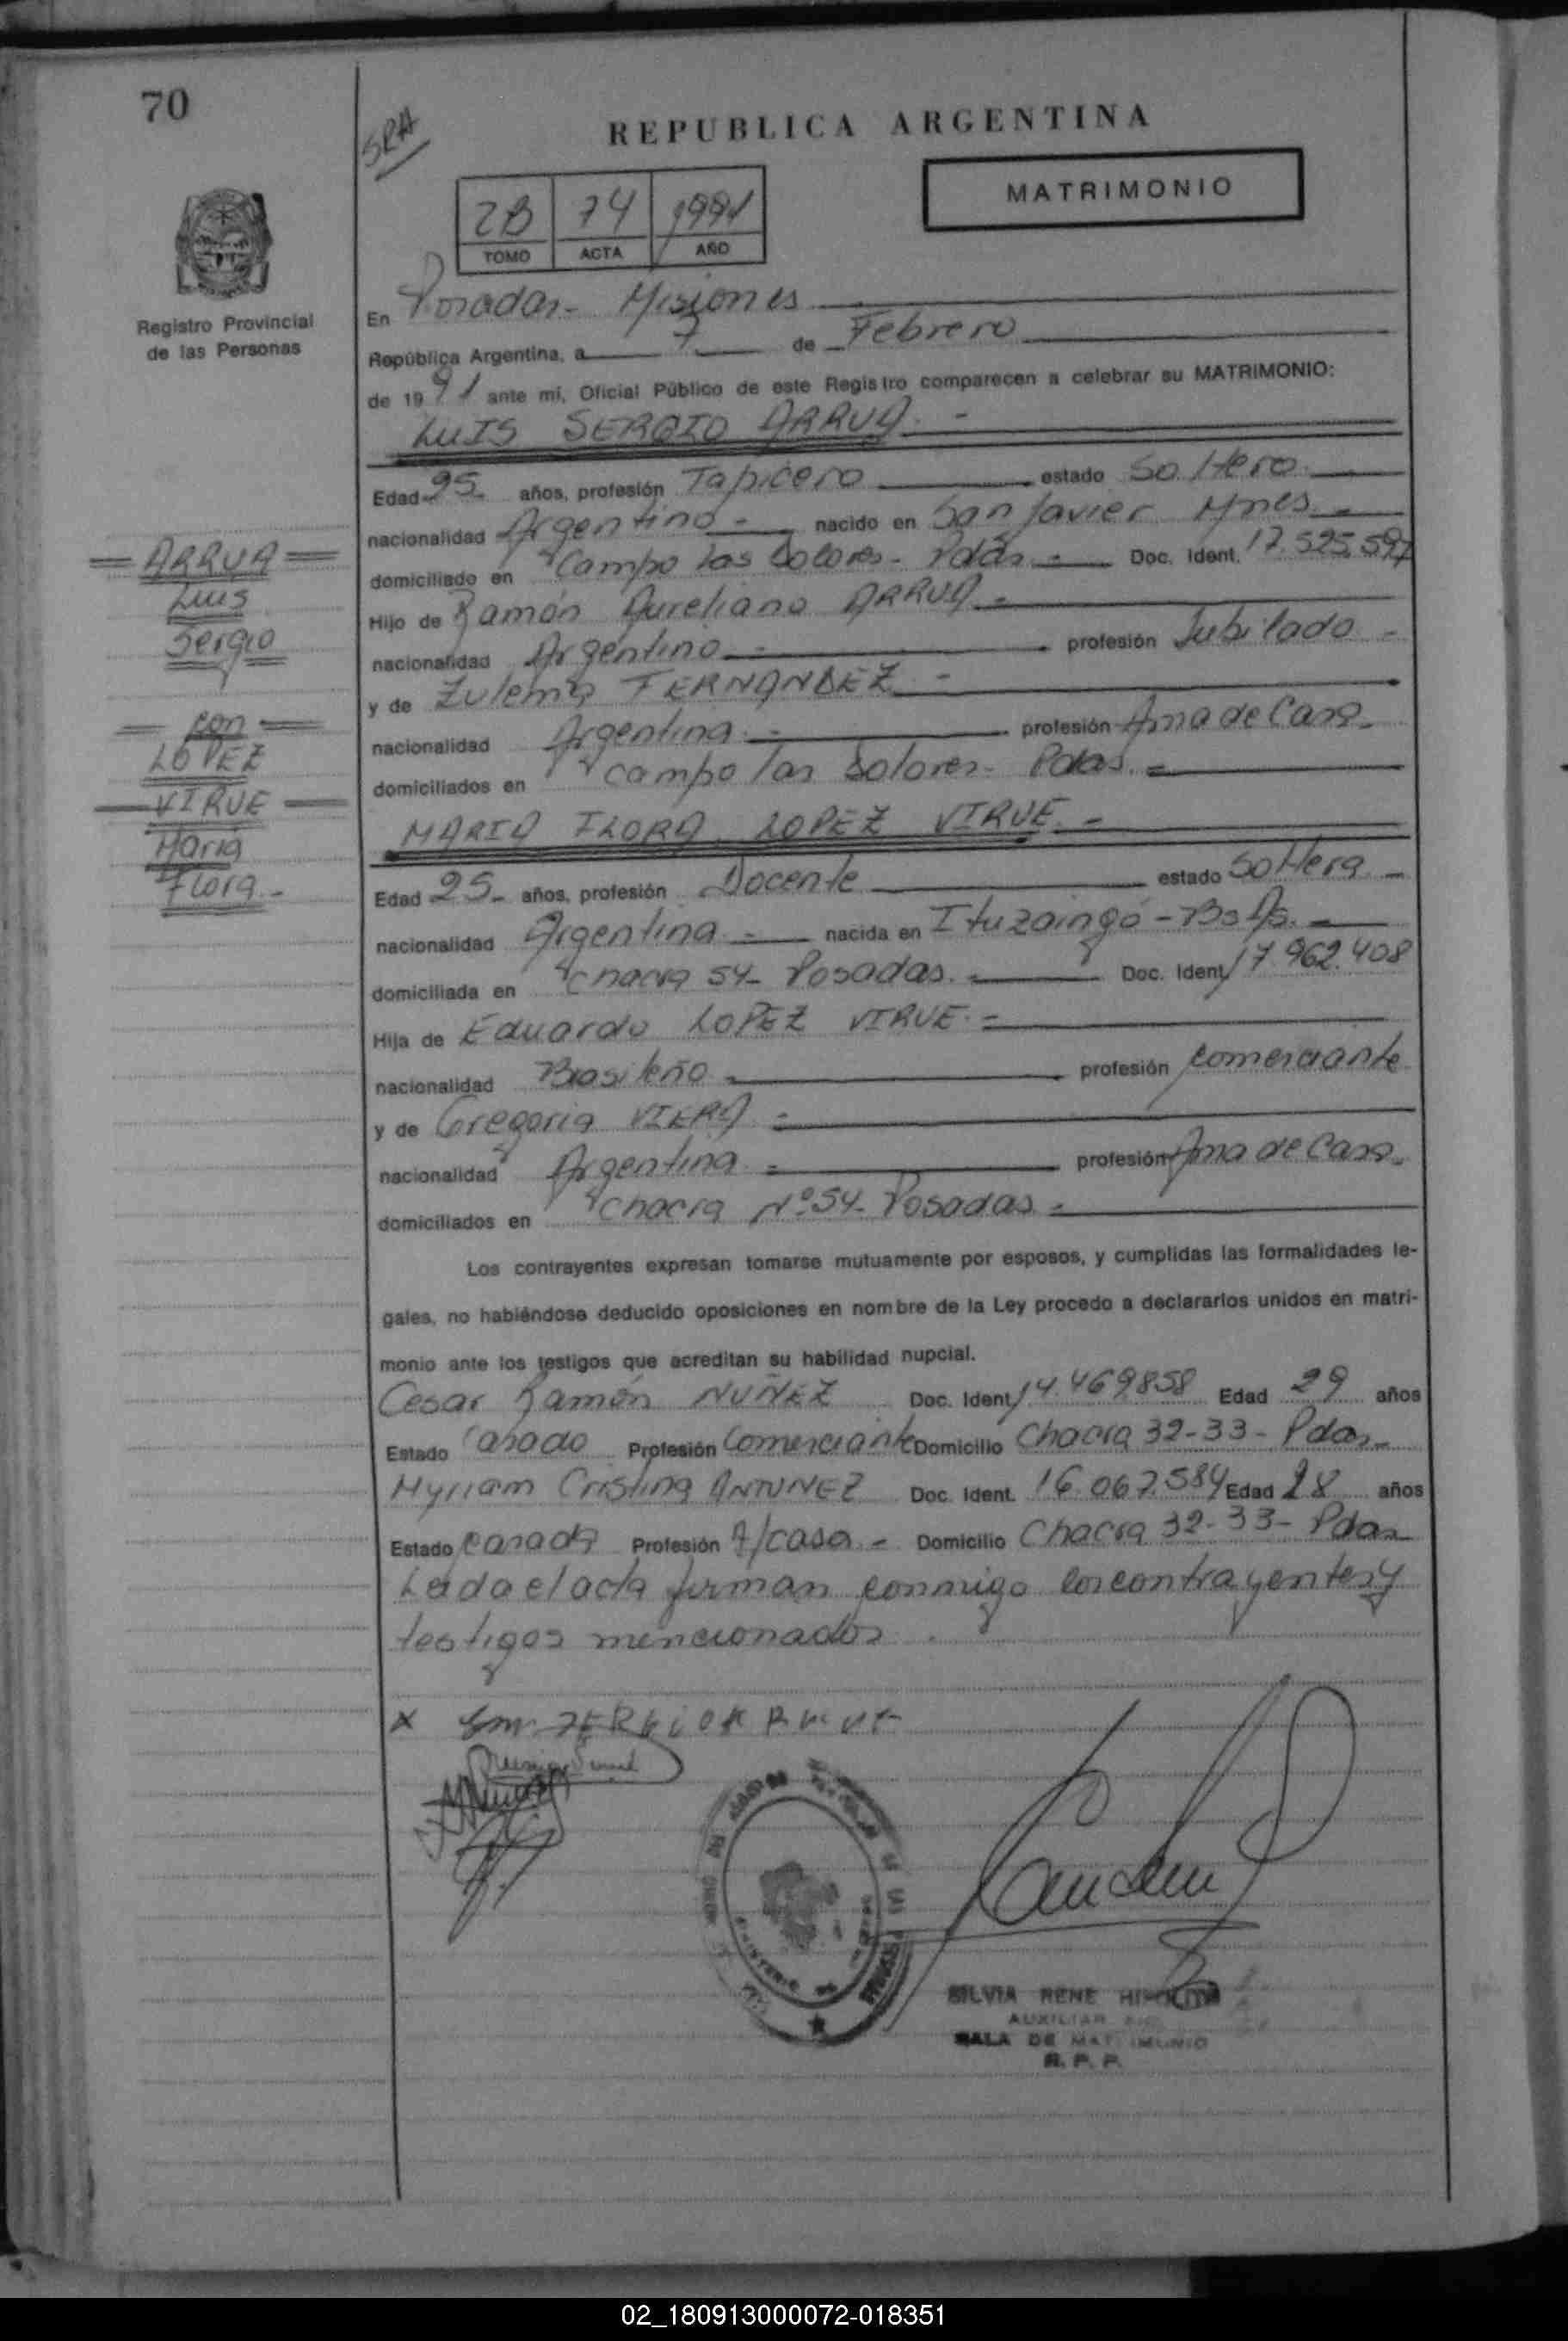 70
SRA
REPUBLICA ARGENTINA
2B 74 1991
TOMO ACTA AÑO
MATRIMONIO
Registro Provincial
de las Personas
En Posadas - Misiones
República Argentina, a 7 de Febrero
de 1991 ante mí, Oficial Público de este Registro comparecen a celebrar su MATRIMONIO:
LUIS SERGIO ARRUA. -
Edad 25 años, profesión Tapicero estado Soltero
nacionalidad Argentino - nacido en San Javier Mnes. -
domiciliado en Campo Las Dolores - Pdas. - Doc. Ident. 17.525.597
Hijo de Ramón Aureliano ARRUA -
nacionalidad Argentino - profesión Jubilado -
y de Zulema FERNANDEZ -
nacionalidad Argentina. - profesión Ama de Casa -
domiciliados en Campo las Dolores - Pdas. -
MARIA FLORA LOPEZ VIRUE. -
Edad 25 - años, profesión Docente estado Soltera -
nacionalidad Argentina - nacida en Ituzaingó - Bs As. -
domiciliada en Chacra 54 - Posadas. - Doc. Ident. 17.962.408
Hija de Eduardo LOPEZ VIRUE. -
nacionalidad Brasileño - profesión Comerciante
y de Gregoria VIERA -
nacionalidad Argentina - profesión Ama de Casa -
domiciliados en Chacra Nº 54 - Posadas -
Los contrayentes expresan tomarse mutuamente por esposos, y cumplidas las formalidades le-
gales, no habiéndose deducido oposiciones en nombre de la Ley procedo a declararlos unidos en matri-
monio ante los testigos que acreditan su habilidad nupcial.
Cesar Ramón NUÑEZ Doc. Ident. 14.469858 Edad 29 años
Estado Casado Profesión Comerciante Domicilio Chacra 32-33 - Pdas -
Myriam Cristina ANTUNEZ Doc. Ident. 16.067.584 Edad 28 años
Estado Casada Profesión A/casa - Domicilio Chacra 32-33 - Pdas
Leida el acta firman conmigo los contrayentes y
testigos mencionados.
= ARRUA =
Luis
Sergio
= con =
LOPEZ
= VIRUE =
Maria
Flora -
X SERGIO ARRUA
SILVIA RENE HIPOLITO
AUXILIAR
SALA DE MATRIMONIO
R. P. P.
02_180913000072-018351